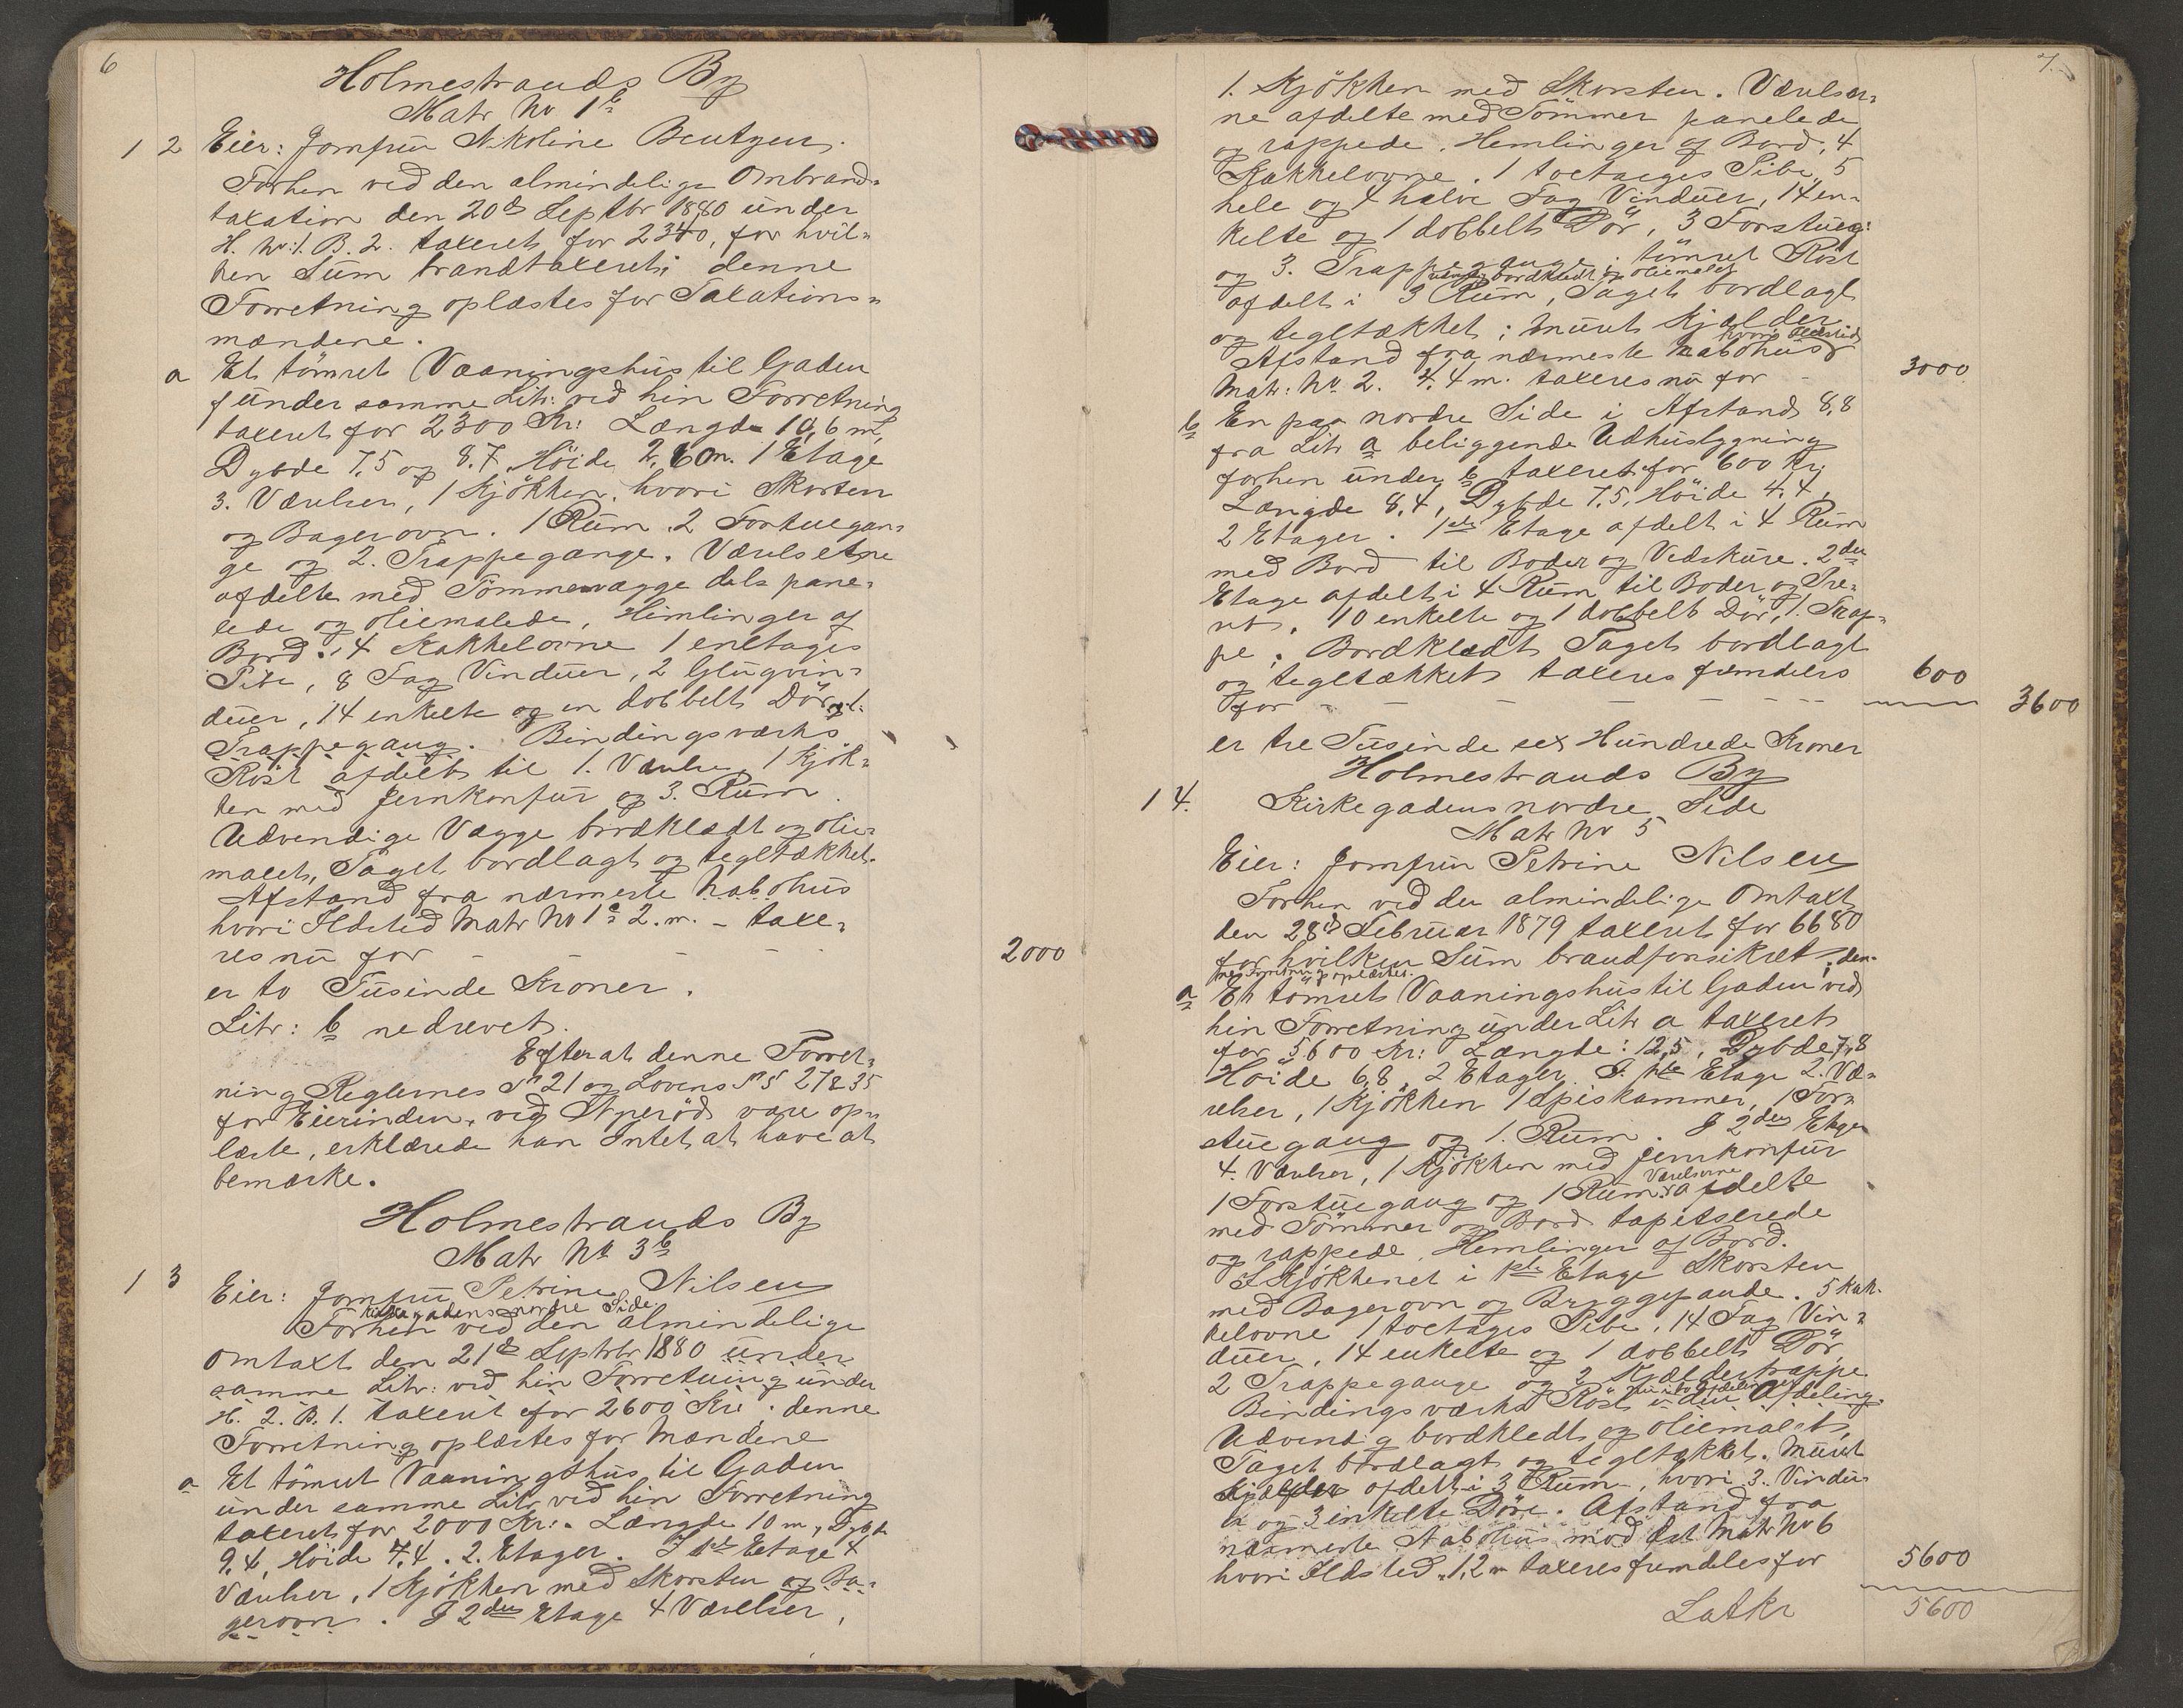 6
Holmestrands By
Matr No 1b
1 2 Eier: Jomfru Nikoline Bentzen.
Forhen ved den almindelige Ombrand-
taxation den 20de Septbr 1880 under
H. No 1. B. 2. taxeret for 2340, for hvil-
ken Sum brandtaxeret; denne
Forretning oplæstes for Taxations-
mændene.
a Et tömret Vaaningshus til Gaden
under samme Litr: ved hin Forretning
taxeret for 2300 Kr: Længde 10,6 m,
Dybde 7,5 og 8.7 Höide 2,60m. 1 Etage
3. Værelser, 1 Kjökken, hvori Skorsten
og Bagerovn. 1 Rum. 2 Forstuegan-
ge og 2. Trappegange. Værelserne
afdelte med Tömmervægge dels pane-
lede og oliemalede, Himlinger af
Bord. 4 Kakkelovne 1 enetages
Pibe, 8 Fag Vinduer, 2 Glugvin-
duer, 14 enkelte og en dobbelt Dör, 1.
Trappegang. Bindingsværks
Röst afdelt til 1. Værelse, 1 Kjök-
ken med Jernkomfur og 3. Rum.
Udvendige Vægge bordklædt og olie-
malet, Taget bordlagt og tegltækket.
Afstand fra nærmeste Nabohus
hvori Ildsted Matr No 1a 2. m. - taxe-
res nu for - - - - 2000
er to Tusinde Kroner.
Litr: b nedrevet.
Efterat denne Forret-
ning Reglernes § 21 og Lovens §§ 27 & 35
for Eierinden, ved Nyeröd vare op-
læste, erklærede han Intet at have at
bemærke.
Holmestrands By
Matr No 3b
1 3 Eier: Jomfru Petrine Nilsen
Kirkegadens nordre Side.
Forhen ved den almindelige
Omtaxt den 21de Septbr 1880 under
samme Litr: ved hin Forretning under
H. 2. B. 1. taxeret for 2600 Kr: denne
Forretning oplæstes for Mændene
a Et tömret Vaaningshus til Gaden
under samme Litr ved hin Forretning
taxeret for 2000 Kr:. Længde 10 m, Dybde
9,4, Höide 4,4. 2. Etager. I 1ste Etage 4
Værelser, 1 Kjökken med Skorsten og Ba-
gerovn. I 2den Etage 4 Værelser,
7.
1. Kjökken med Skorsten. Værelser-
ne afdelte med Tömmer panelede
og rappede. Hemlinger af Bord, 4
Kakkelovne. 1 toetages Pibe, 5
hele og 4 halve Fag Vinduer, 14 en-
kelte og 1 dobbelt Dör, 3 Forstueg:
og 3. Trappegange; tömret Röst
udvendig bordklædt og oliemalet
afdelt i 3 Rum, Taget bordlagt
og tegltækket; muret Kjælder
Afstand fra nærmeste Nabohus hvori Ildsted
Matr: No 2. 4,4 m. taxeres nu for - 3000
b En paa nordre Side i Afstand 8,8
fra Litr a beliggende Udhusbygning
forhen under b taxeret for 600 Kr:
Længde 8,4, Dybde 7,5, Höide 4,4,
2 Etager. 1ste Etage afdelt i 4 Rum
med Bord til Boder og Vedskure. 2den
Etage afdelt i 4 Rum til Boder og Pre-
vet. 10 enkelte og 1 dobbelt Dör, 1. Trap-
pe. Bordklædt Taget bordlagt
og tegltækket taxeres fremdeles
for - - - - 600 3600
er tre Tusinde sex Hundrede Kroner
Holmestrands By
1 4. Kirkegadens nordre Side
Matr No 5
Eier: Jomfru Petrine Nilsen
Forhen ved den almindelige Omtaxt
den 28de Februar 1879 taxeret for 6680
for hvilken Sum brandforsikret; den-
ne Forretning oplæstes.
a Et tömret Vaaningshus til Gaden ved
hin Forretning under Litr a taxeret
for 5600 Kr: Længde: 12,5, Dybde 7,8
Höide 6,8, 2 Etager. I 1ste Etage 2. Væ-
relser, 1 Kjökken 1 Spiskammer, 1 For-
stuegang og 1. Rum. I 2den Etage
4. Værelser, 1 Kjökken med Jernkomfur
1 Forstuegang og 1 Rum. Værelserne afdelte
med Tömmer og Bord tapetserede
og rappede, Hemlinger af Bord.
I Kjökkenet i 1ste Etage Skorsten
med Bagerovn og Bryggepande. 5 Kak-
kelovne 1 toetages Pibe, 14 Fag Vin-
duer, 14 enkelte og 1 dobbelt Dör,
2 Trappegange og 2 Kjældertrappe
Bindingsværks Röst uden Afdeling.
Udvendig bordkledt og oliemalet,
Taget bordlagt og tegltækket. Muret
Kjælder afdelt i 3 Rum, hvori 3. Vindu-
er og 3 enkelte Döre. Afstand fra
nærmeste Nabohus mod öst Matr No 6
hvori Ildsted. 1,2 m taxeres fremdeles for 5600
Latkr 5600